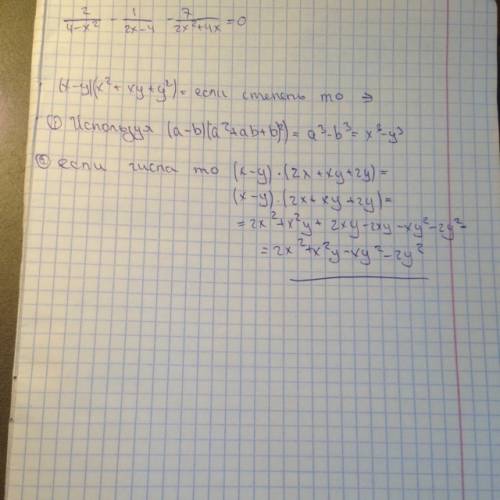 2/(4-x²) - 1/(2x-4) - 7/(2x²+4x) = 0
(x-y)(x²+xy+y²) = если степень то ⇒
① Используя (a-b)(a²+ab+b²) = a³-b³ = x³-y³
② если числа то (x-y)·(2x+xy+2y) =
(x-y)·(2x+xy+2y) =
= 2x²+x²y+2xy-2xy-xy²-2y² =
= 2x²+x²y-xy²-2y²